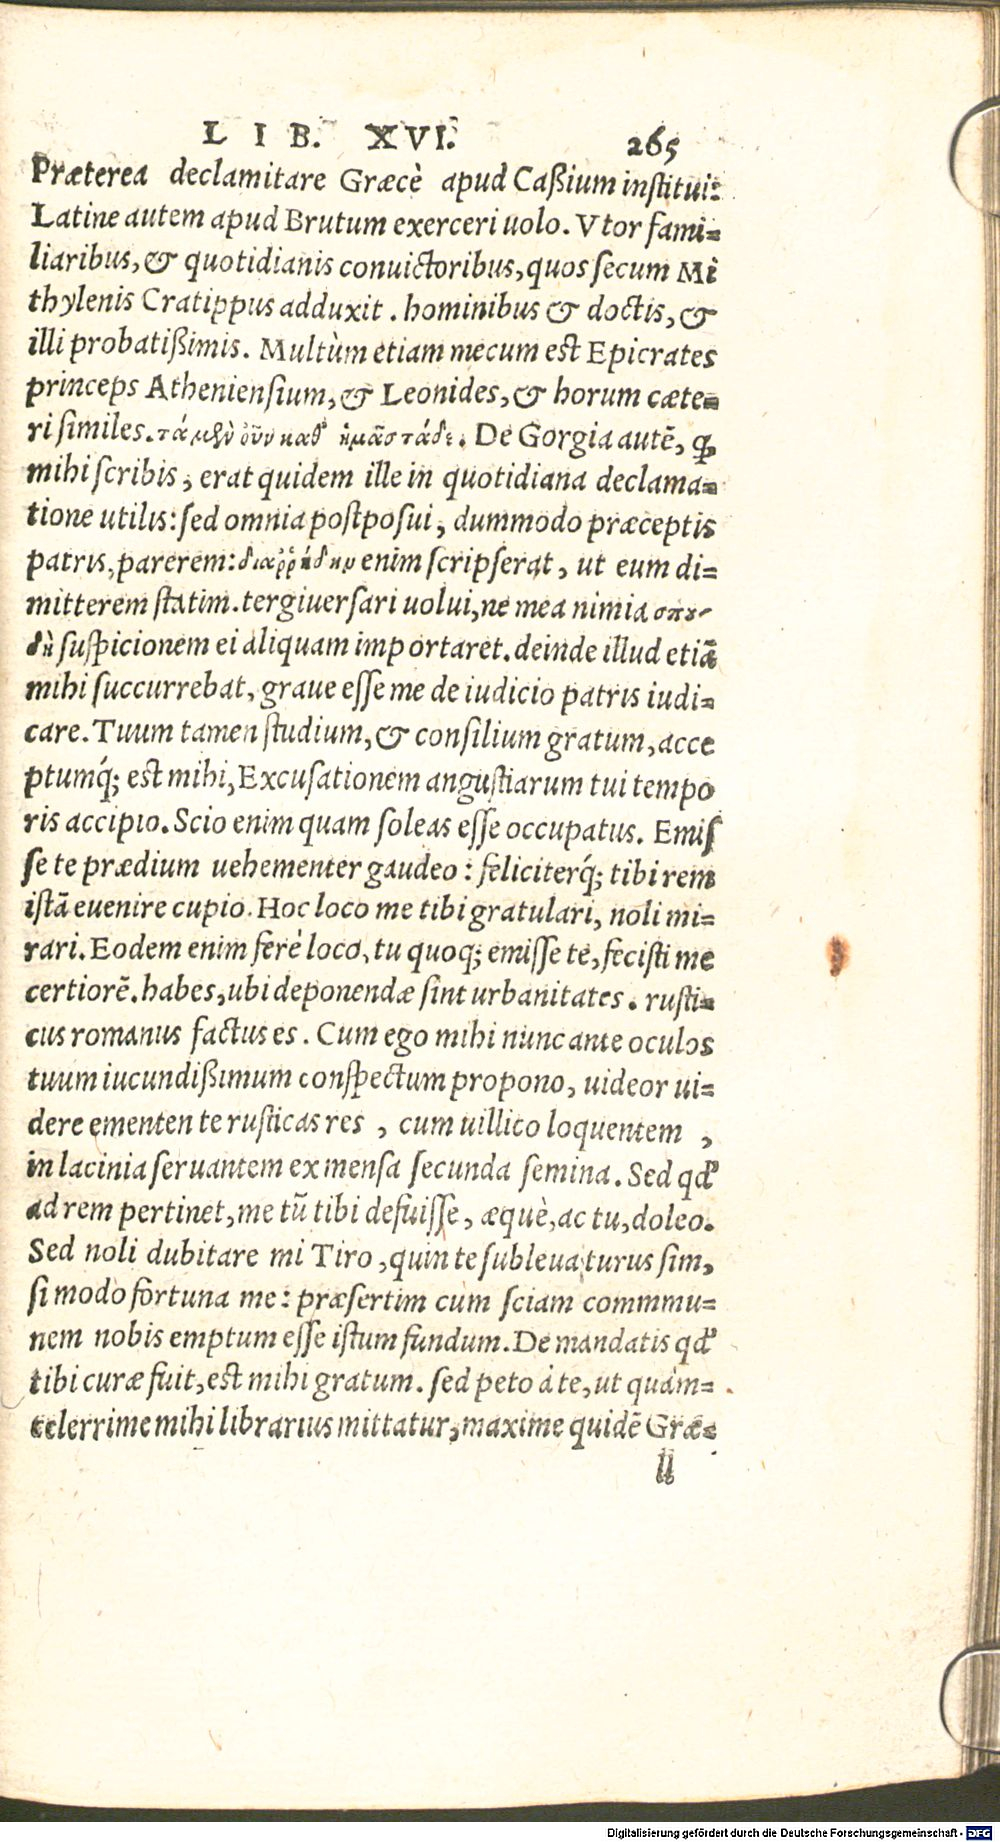 LIB. XVI. 265
Præterea declamitare Græcè apud Caßium institui:
Latine autem apud Brutum exerceri uolo. Vtor fami-
liaribus, & quotidianis convictoribus, quos secum Mi
thylenis Cratippus adduxit. hominibus & doctis, &
illi probatißimis. Multùm etiam mecum est Epicrates
princeps Atheniensium, & Leonides, & horum cæte-
ri similes. τὰ μὲν οὖν καθ' ἡμᾶς τάδε. De Gorgia autẽ, ꝙ
mihi scribis, erat quidem ille in quotidiana declama-
tione utilis: sed omnia postposui, dummodo præceptis
patris, parerem: διαῤῥήδην enim scripserat, ut eum di-
mitterem statim. tergiuersari uolui, ne mea nimia σπου-
δὴ suspicionem ei aliquam importaret. deinde illud etiã
mihi succurrebat, graue esse me de iudicio patris iudi-
care. Tuum tamen studium, & consilium gratum, acce
ptumq́; est mihi, Excusationem angustiarum tui tempo
ris accipio. Scio enim quam soleas esse occupatus. Emis
se te prædium uehementer gaudeo: feliciterq́; tibi rem
istã euenire cupio. Hoc loco me tibi gratulari, noli mi-
rari. Eodem enim ferè loco, tu quoq; emisse te, fecisti me
certiorẽ. habes, ubi deponendæ sint urbanitates. rusti-
cus romanus factus es. Cum ego mihi nunc ante oculos
tuum iucundißimum conspectum propono, uideor ui-
dere ementen te rusticas res, cum uillico loquentem,
in lacinia seruantem ex mensa secunda semina. Sed qđ
ad rem pertinet, me tũ tibi defuisse, æquè, ac tu, doleo.
Sed noli dubitare mi Tiro, quin te subleuaturus sim,
si modo fortuna me: præsertim cum sciam commmu-
nem nobis emptum esse istum fundum. De mandatis qđ
tibi curæ fuit, est mihi gratum. sed peto à te, ut quàm-
celerrime mihi librarius mittatur, maxime quidẽ Græ-
ll
Digitalisierung gefördert durch die Deutsche Forschungsgemeinschaft - DFG